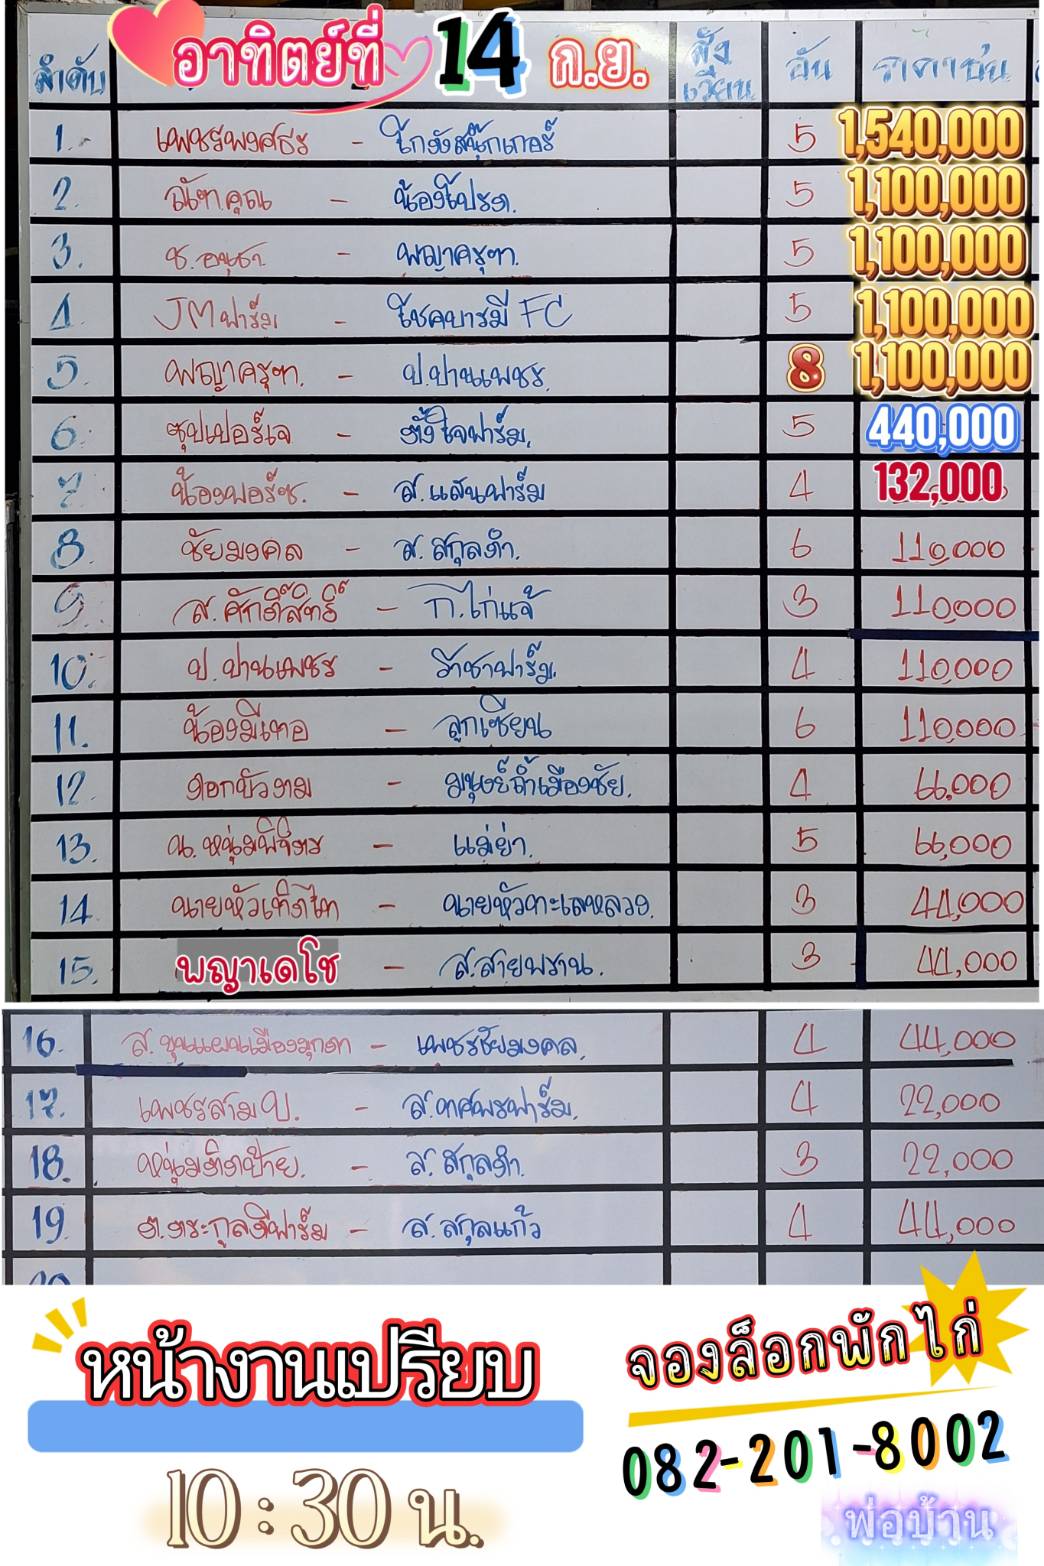 อาทิตย์ที่ 14 ก.ย.
ลำดับ สังเวียน อัน ราคาบ่น
1. เพชรพงศธร - โกฮังสนุ๊กเกอร์ 5 1,540,000
2. ณัฑคุณ - น้องโปรด. 5 1,100,000
3. ช.อนุชา - พญาครุฑ. 5 1,100,000
4 JMฟาร์ม - โชคบารมี FC 5 1,100,000
5. พญาครุฑ. - ป.ปานเพชร. 8 1,100,000
6 ซุปเปอร์เจ - ตั้งใจฟาร์ม. 5 440,000
7 น้องพอร์ช. - ส.แสนฟาร์ม 4 132,000
8. ชัยมงคล - ส.สกุลดำ. 6 110,000
9. ส.ศักดิ์สิทธิ์ - ก.ไก่แจ้ 3 110,000
10. ป.ปานเพชร - ราชาฟาร์ม. 4 110,000
11. น้องมีเทอ - ลูกเซียน 6 110,000
12. ดอกบัวงาม - มนุษย์ถ้ำเมืองชัย. 4 66,000
13. น.หนุ่มพิจิตร - แม่ย่า. 5 66,000
14 นายหัวเทิดไท - นายหัวทะเลหลวง. 3 44,000
15. พญาเดโช - ส.สายพราน. 3 44,000
16. ส.ขุนแผนเมืองมุกดา - เพชรชัยมงคล. 4 44,000
17. เพชรสาม ข. - ส.ทศพรฟาร์ม. 4 22,000
18. หนุ่มติดป้าย. - ส.สกุลดำ. 3 22,000
19. ต.ตระกูลดีฟาร์ม - ส.สกุลแก้ว 4 44,000
หน้างานเปรียบ
10:30 น.
จองล็อกพักไก่
082-201-8002
พ่อบ้าน